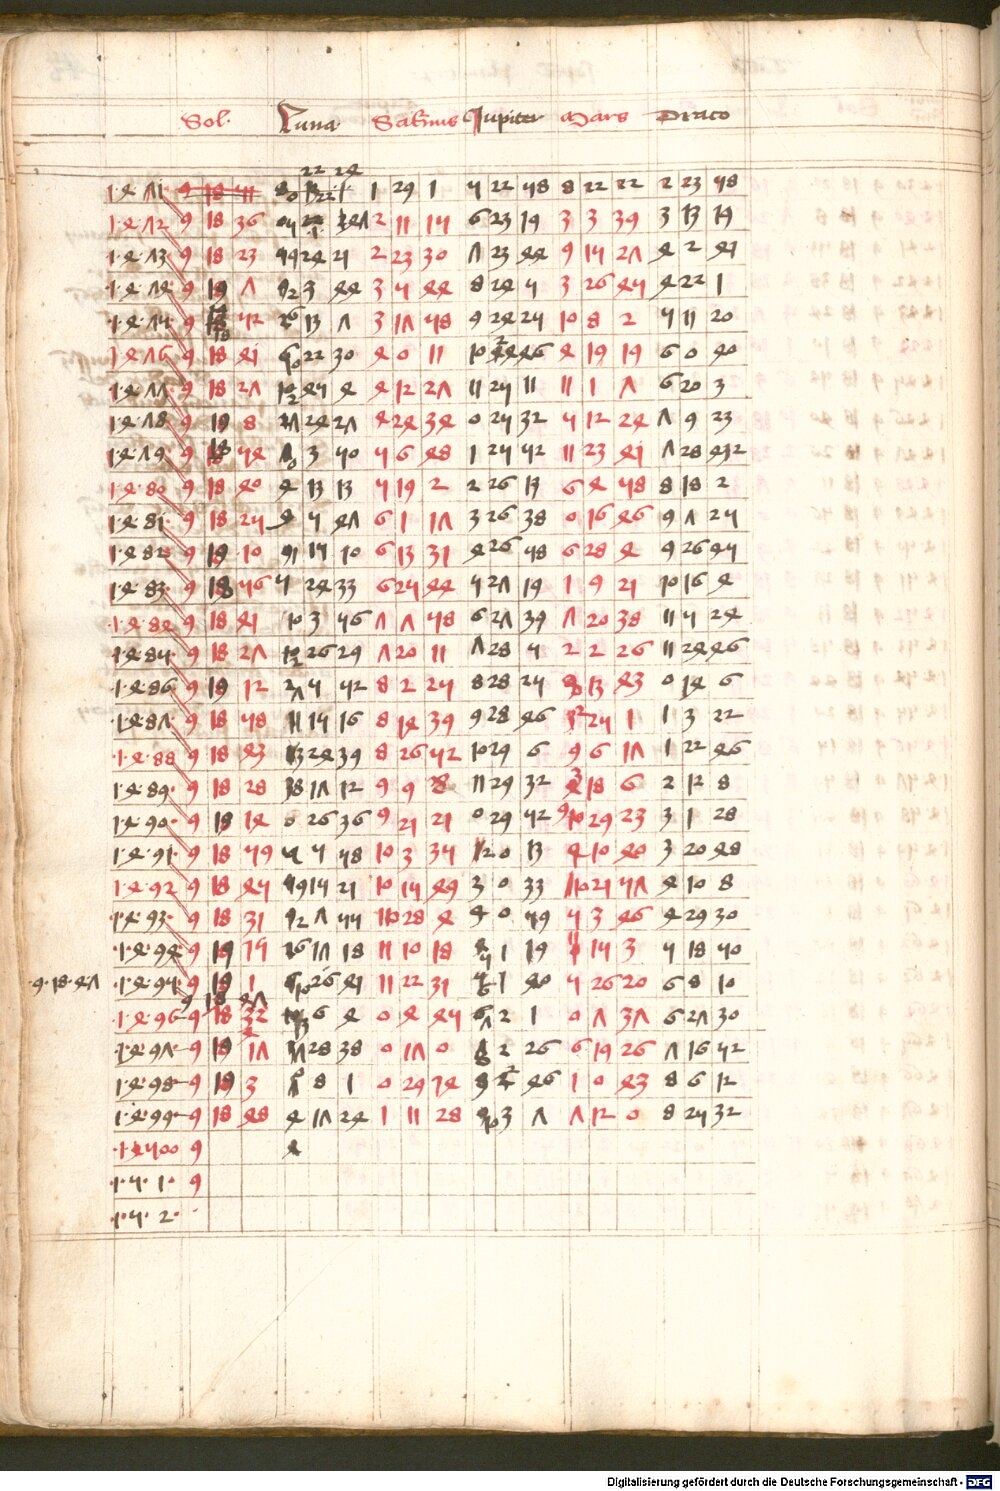 Sol Luna Saturnus Jupiter Mars Draco
22 24
1471 9 18 51 1 29 1 5 22 58 8 22 22 2 23 58
1472 9 18 36 2 11 15 6 23 19 3 3 39 3 13 19
1473 9 18 23 24 21 2 23 30 7 23 44 9 15 27 4 2 41
1474 9 19 7 3 44 3 5 44 8 24 5 3 26 45 4 22 1
1475 9 18 52 13 7 3 17 58 9 24 25 10 8 2 5 11 20
1476 9 18 41 22 30 4 0 11 10 24 46 4 19 19 6 0 40
1477 9 18 27 25 4 4 12 27 11 25 11 11 1 7 6 20 3
1478 9 19 8 24 27 4 24 34 0 25 32 5 12 24 7 9 23
1479 9 18 54 3 50 5 6 48 1 25 52 11 23 41 7 28 42
1480 9 18 40 4 13 13 5 19 2 2 26 13 6 4 58 8 18 2
1481 9 18 25 4 5 47 6 1 17 3 26 38 0 16 46 9 7 25
1482 9 19 10 15 10 6 13 31 4 26 58 6 28 4 9 26 45
1483 9 18 56 5 24 33 6 25 44 5 27 19 1 9 21 10 16 4
1484 9 18 41 10 3 56 7 7 58 6 27 39 7 20 38 11 5 24
1485 9 18 27 26 29 7 20 11 7 28 5 2 2 26 11 24 46
1486 9 19 12 5 52 8 2 25 8 28 25 13 43 0 14 6
1487 9 18 58 11 15 16 8 14 39 9 28 46 2 25 1 1 3 22
1488 9 18 43 24 39 8 26 52 10 29 6 9 6 17 1 22 46
1489 9 18 28 17 12 9 9 8 11 29 32 3 18 6 2 12 8
1490 9 18 14 8 26 36 9 21 21 0 29 52 9 29 23 3 1 28
1491 9 18 59 5 58 10 3 35 2 0 13 4 10 40 3 20 48
1492 9 18 45 15 21 10 15 49 3 0 33 10 21 57 4 10 8
1493 9 18 31 7 55 10 28 4 4 0 59 5 3 46 4 29 30
1494 9 19 15 17 18 11 10 18 5 1 19 11 15 3 5 18 50
9 18 47 1495 9 19 1 26 41 11 22 31 6 1 40 5 26 20 6 8 10
9 18 47
1496 9 18 32 6 4 0 4 45 7 2 1 0 7 37 6 27 30
1497 9 19 17 28 38 0 17 0 8 2 26 6 19 26 7 16 52
1498 9 19 3 8 1 0 29 14 9 2 46 1 0 43 8 6 12
1499 9 18 48 4 17 24 1 11 28 10 3 7 7 12 0 8 25 32
1500 9 4
15 1 9
15 2
Digitalisierung gefördert durch die Deutsche Forschungsgemeinschaft - DFG